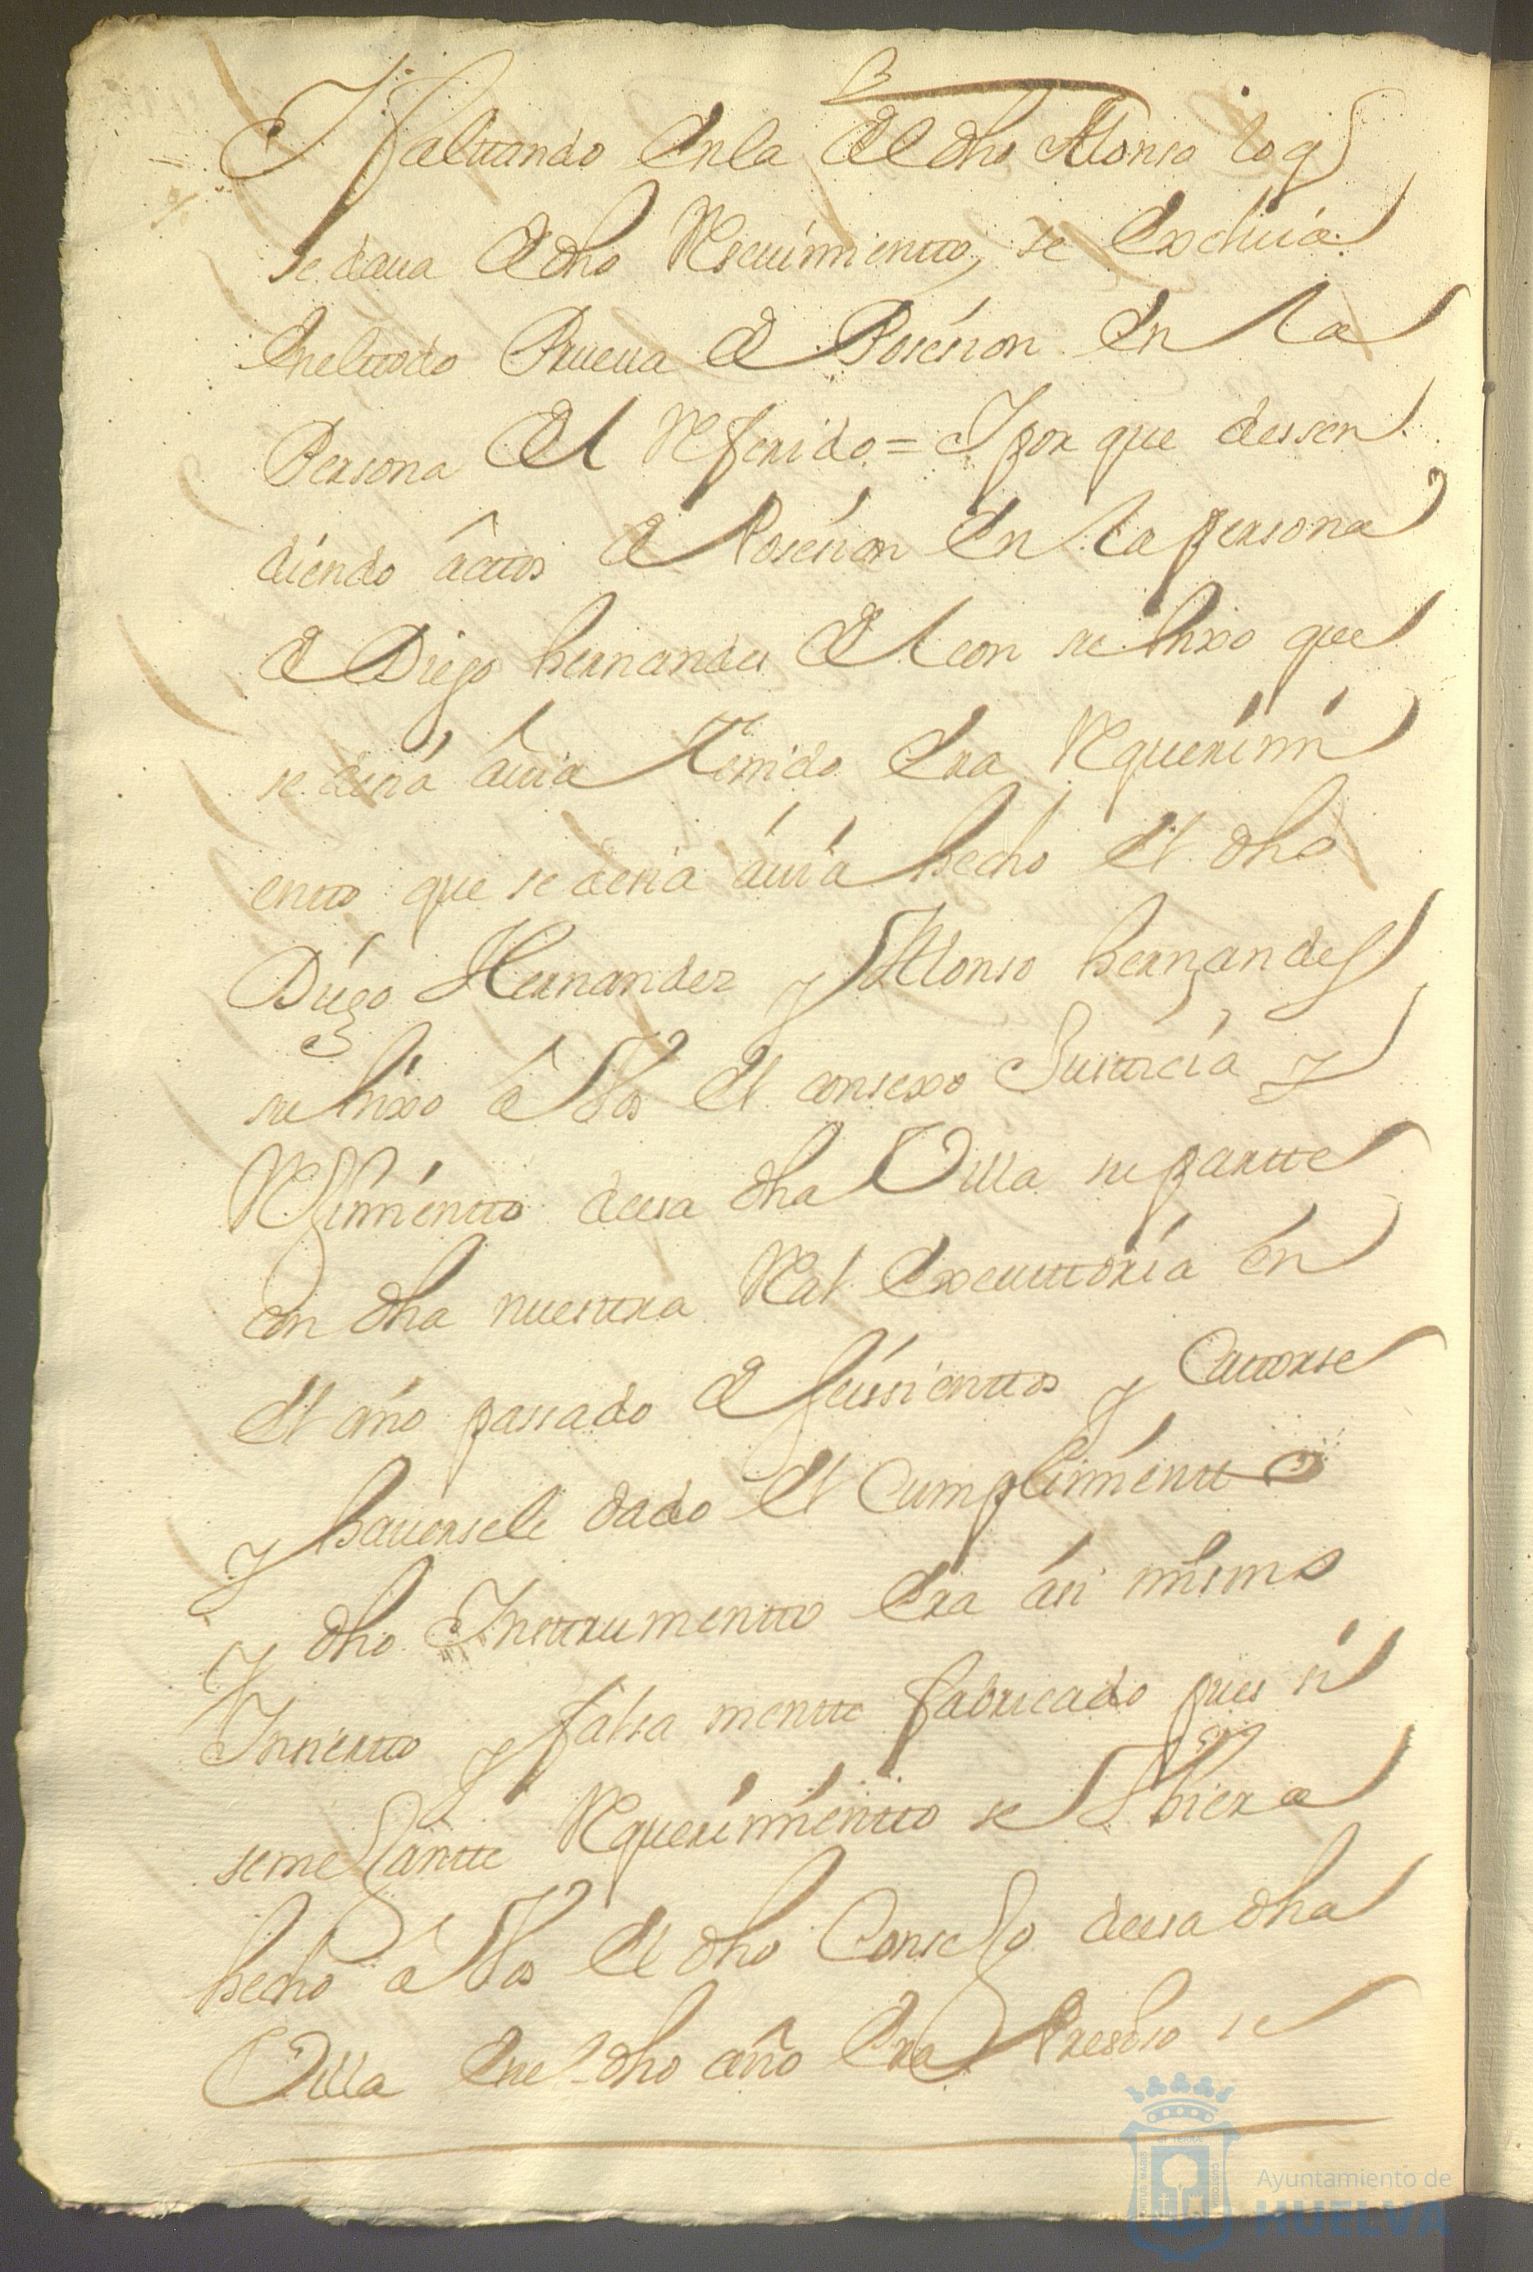 Y faltando En la Del dho Alonso lo q
se daua A dho Resciuimientto, se Excluia
En el ttodo Prueua de Posesion En la
Persona Del Referido = Y por que dessen
diendo â actos de Posesion En la persona
de Diego hernandes De leon su hixo que
se desia auia tenido Era Requerimi
entto que se desia auia hecho El dho
Diego Hernandez y Alonso hernandes
su hixo â Vos El consexo Justicia y
Reximientto desa dha Villa su partte
con dha nuestra Real Executtoria en
El año passado de seissienttos y Cattorse
y hauersele dado El Cumplimientto
y dho Insttrumentto Era asi mismo
Insiertto y falsa mentte fabricado pues si
semejantte Requerimientto se Vbiera
hecho â Vos El dho Consejo desa dha
Villa En el dho año Era Presiso se
Ayuntamiento de
HUELVA